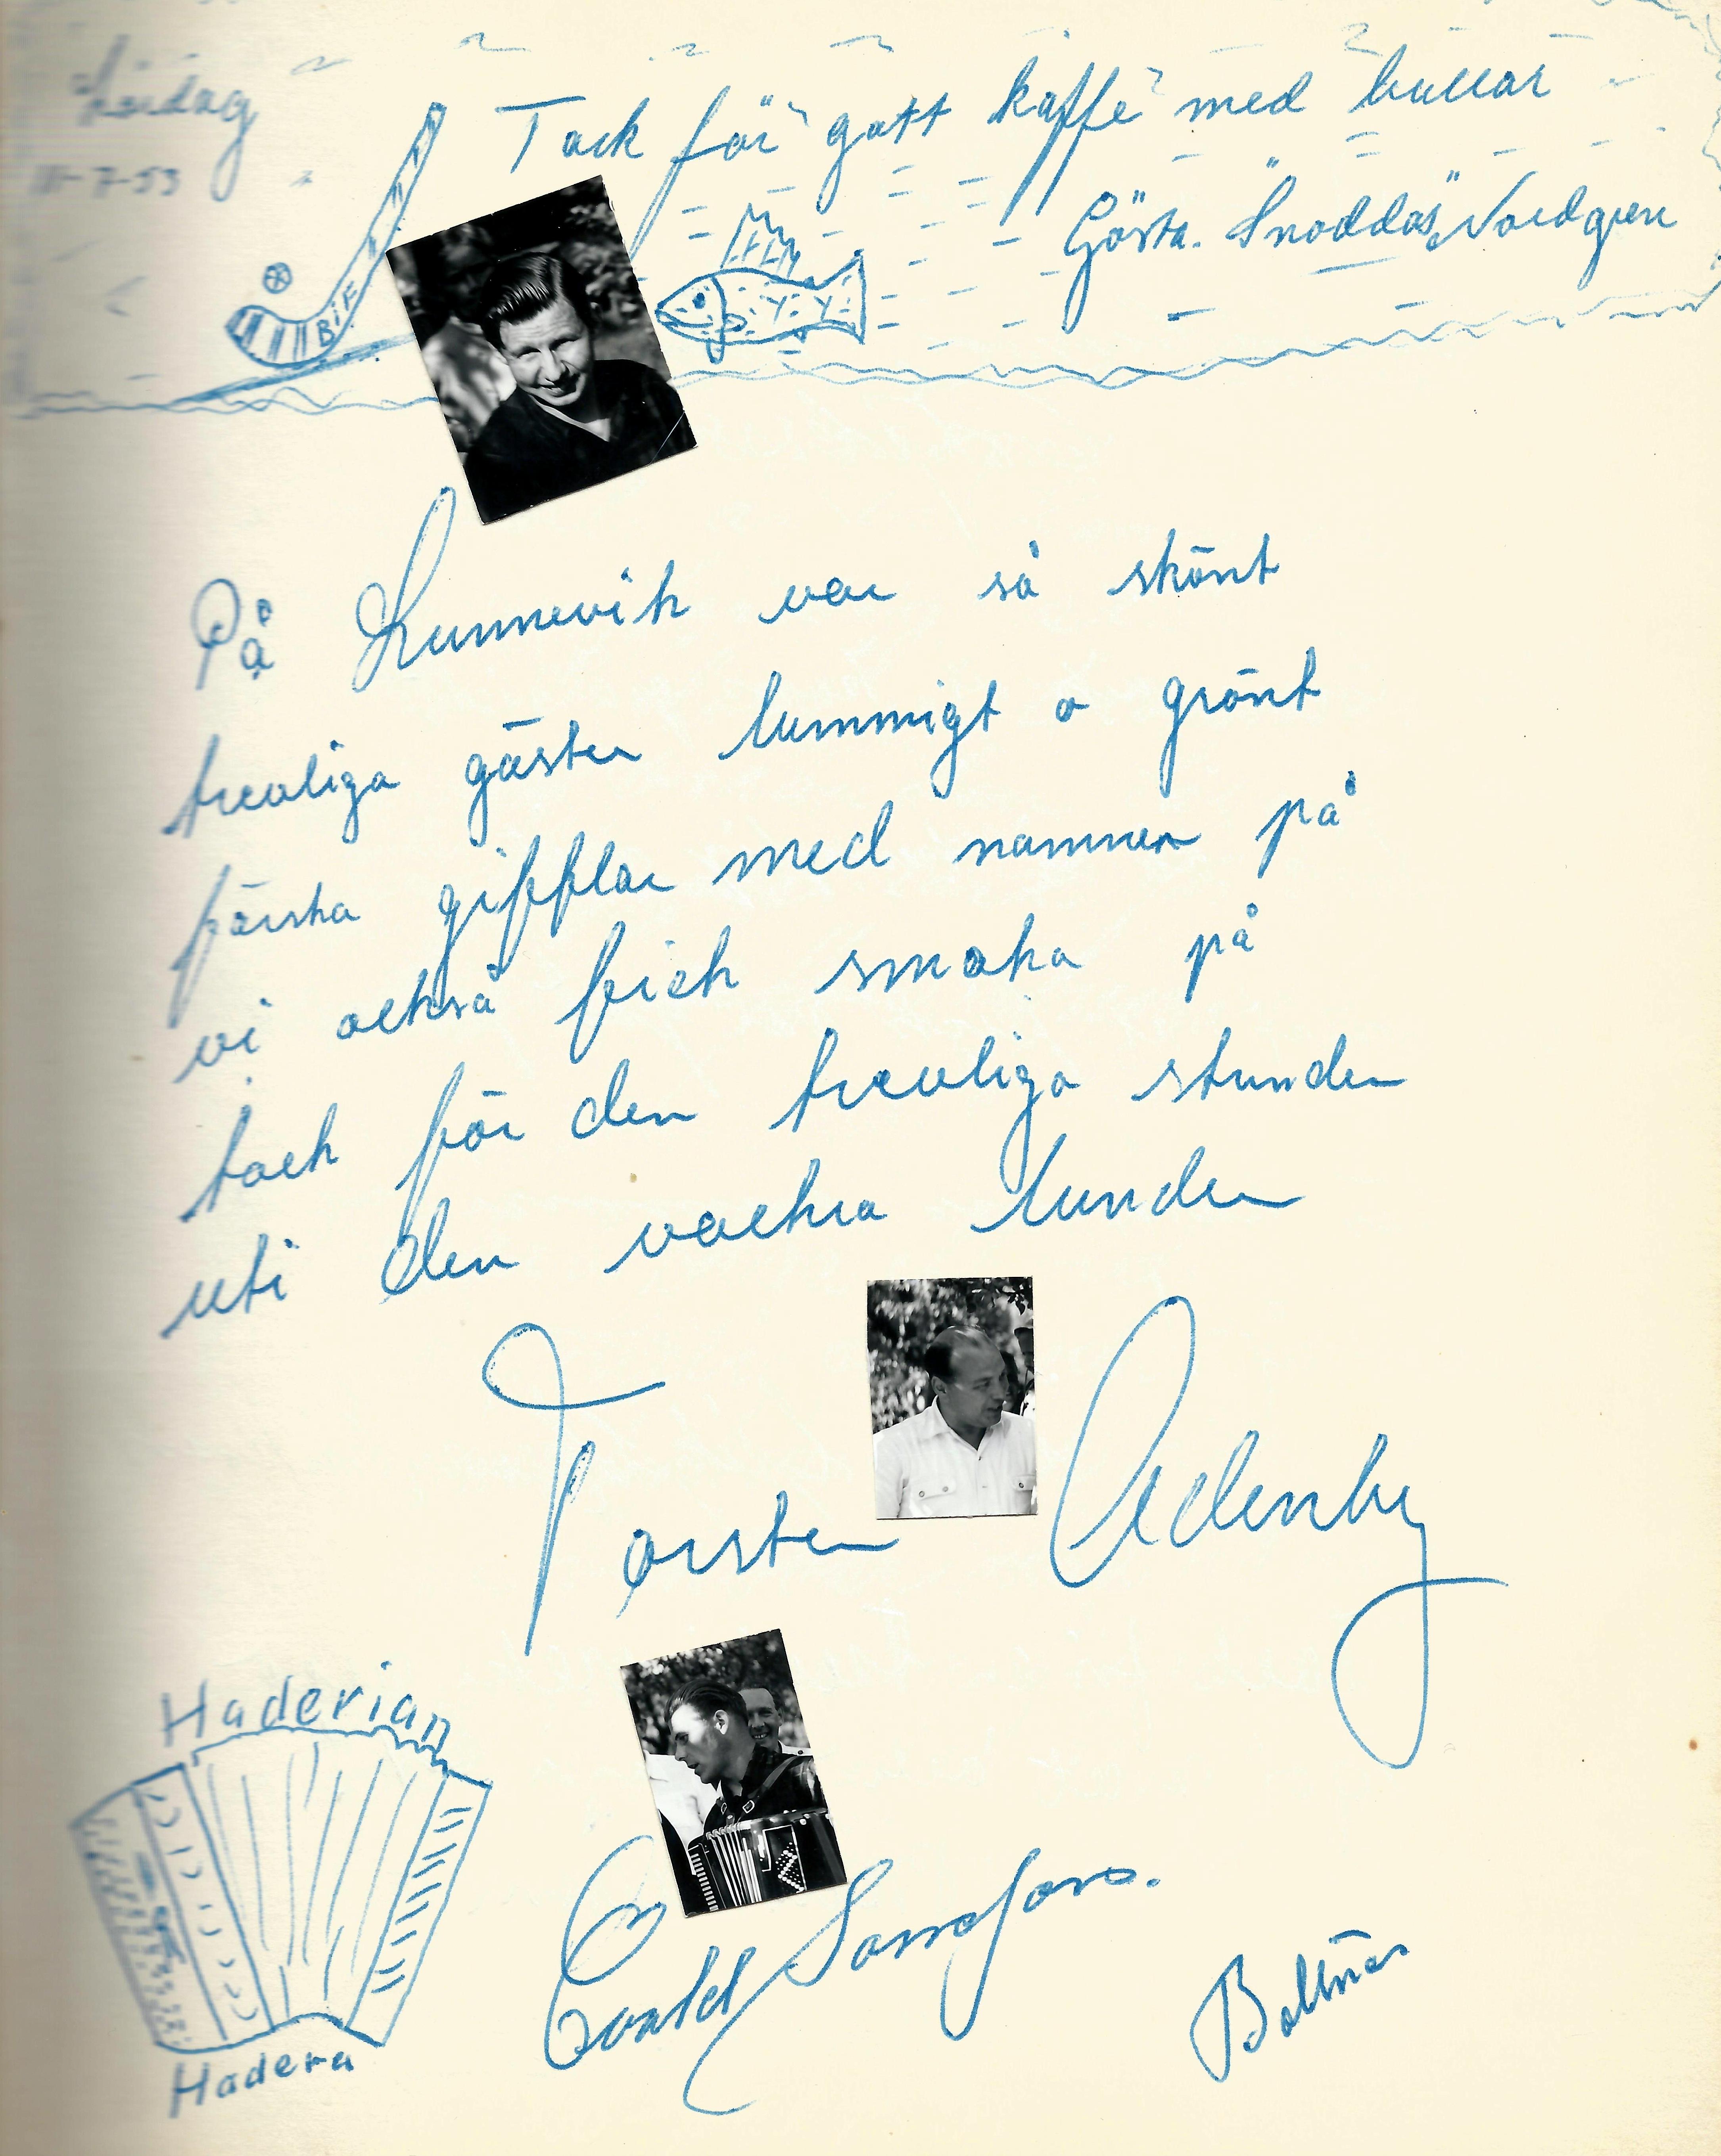 Lördag
11-7-53
Tack för "gott kaffe" med bullar
Gösta. "Snoddas" Nordgren
BiF
På Lunnevik var så skönt
trevliga gäster lummigt o grönt
färska gifflar med namnen på
vi också fick smaka på
tack för den trevliga stunden
uti den vackra lunden
Torsten Adenby
Haderian
Hadera
Sandfors.
Bollnäs